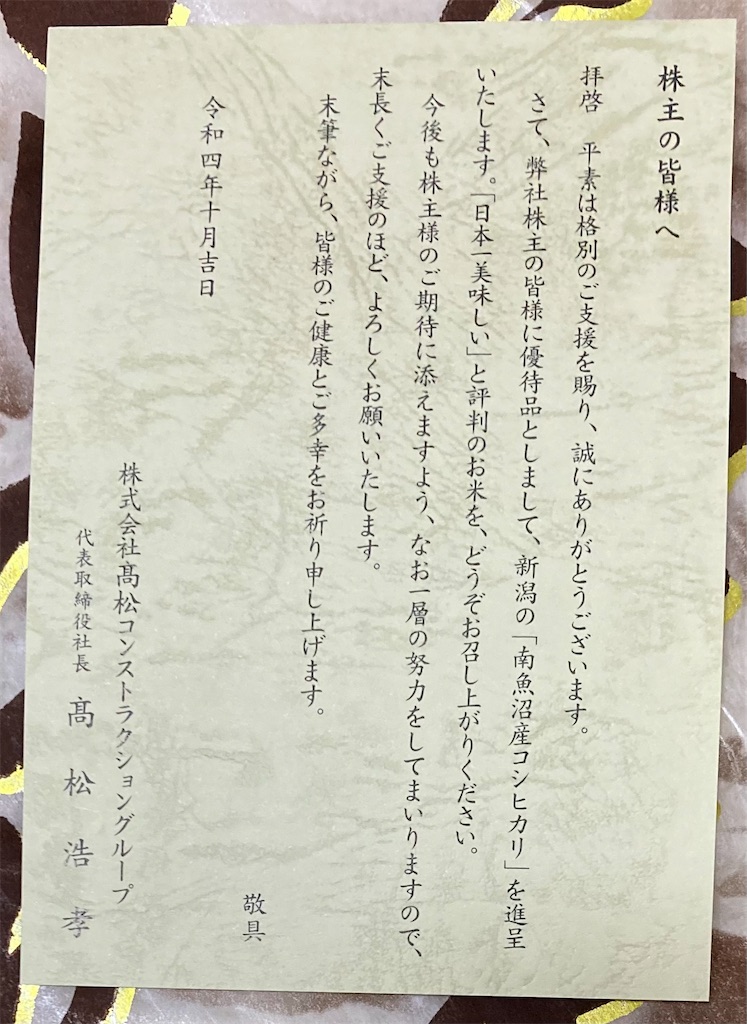 株主の皆様へ
拝啓　平素は格別のご支援を賜り、誠にありがとうございます。
さて、弊社株主の皆様に優待品としまして、新潟の「南魚沼産コシヒカリ」を進呈
いたします。「日本一美味しい」と評判のお米を、どうぞお召し上がりください。
今後も株主様のご期待に添えますよう、なお一層の努力をしてまいりますので、
末長くご支援のほど、よろしくお願いいたします。
末筆ながら、皆様のご健康とご多幸をお祈り申し上げます。
敬具
令和四年十月吉日
株式会社髙松コンストラクショングループ
代表取締役社長　髙松浩孝